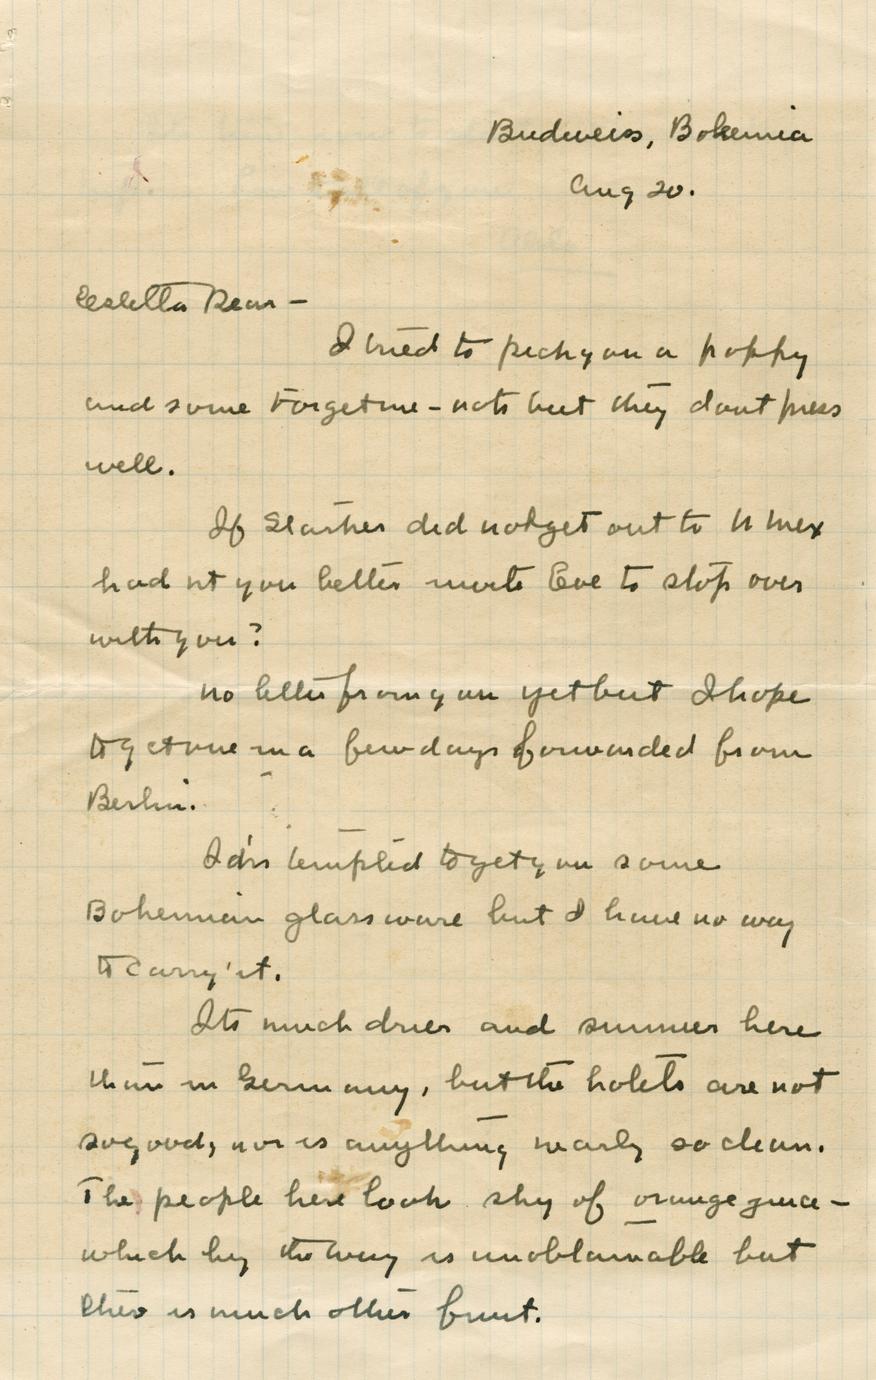 Budweiss, Bohemia
Aug 20.
Estella Dear —
I tried to pick you a poppy
and some Forgetme-nots but they dont press
well.
If did not get out to N Mex
had nt you better invite Eve to stop over
with you?
No letter from you yet but I hope
to get one in a few days forwarded from
Berlin.
tempted to get you some
Bohemian glassware but I have no way
to carry it.
Its much drier and sunnier here
than in Germany, but the hotels are not
so good, nor is anything nearly so clean.
The people here look shy of orange juice —
which by the way is unobtainable but
there is much other fruit.